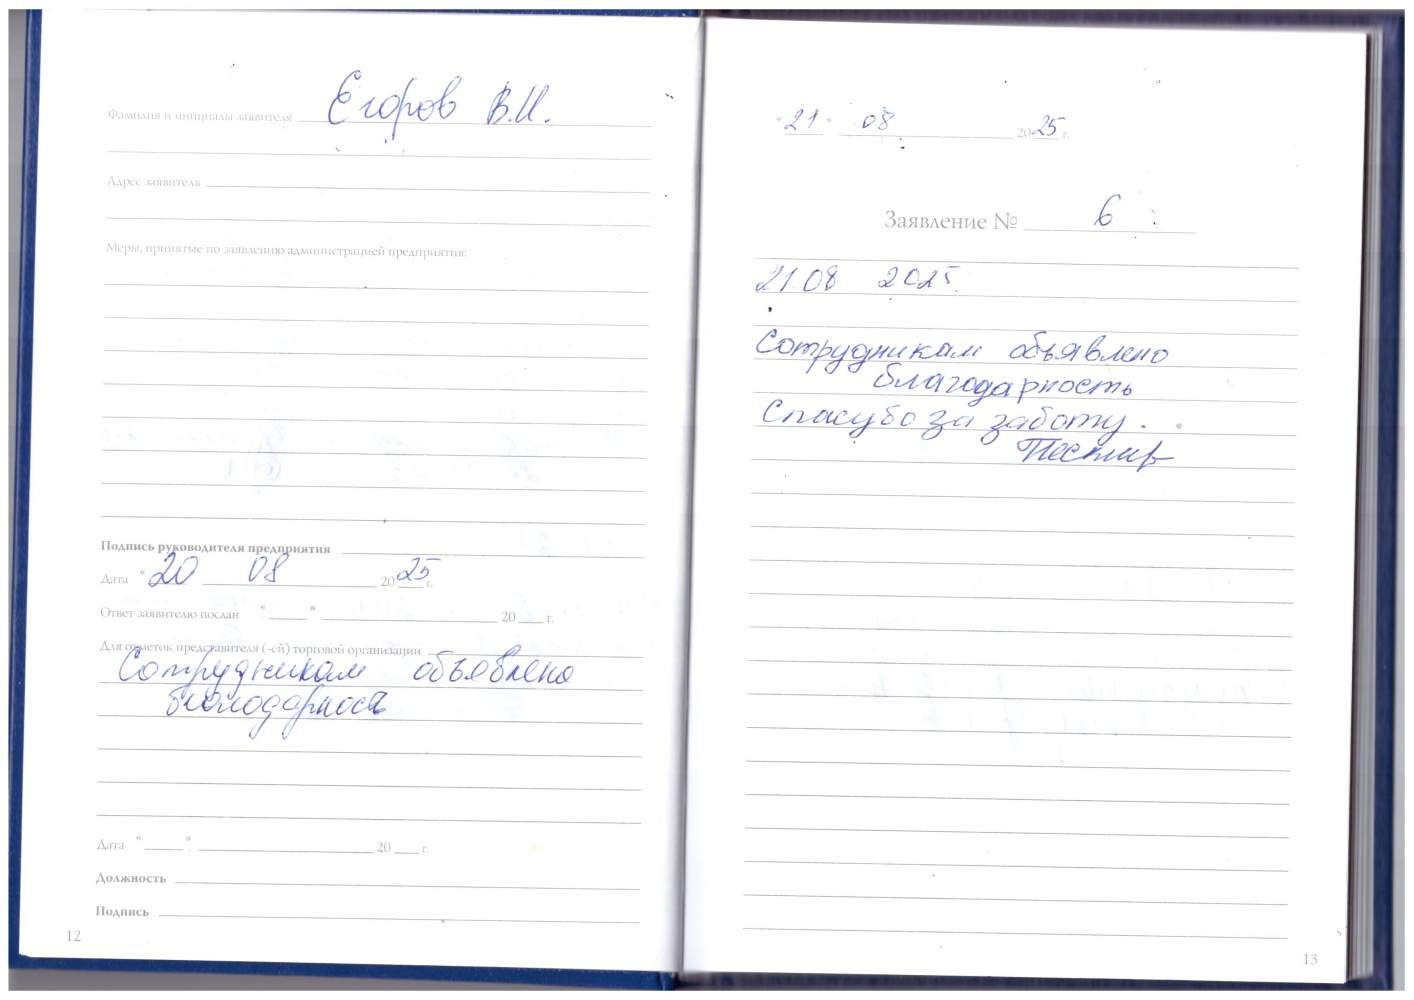 Фамилия и инициалы заявителя Егоров В.И.
Адрес заявителя
Меры, принятые по заявлению администрацией предприятия:
Подпись руководителя предприятия
Дата “20 08 2025 г.
Ответ заявителю послан “ ” 20 г.
Для отметок представителя (-ей) торговой организации
Сотрудникам объявлено
благодарность
Дата “ ” 20 г.
Должность
Подпись
12
“21” 08 2025 г.
Заявление № 6
21.08 2025.
Сотрудникам объявлено
благодарность
Спасибо за заботу.
13